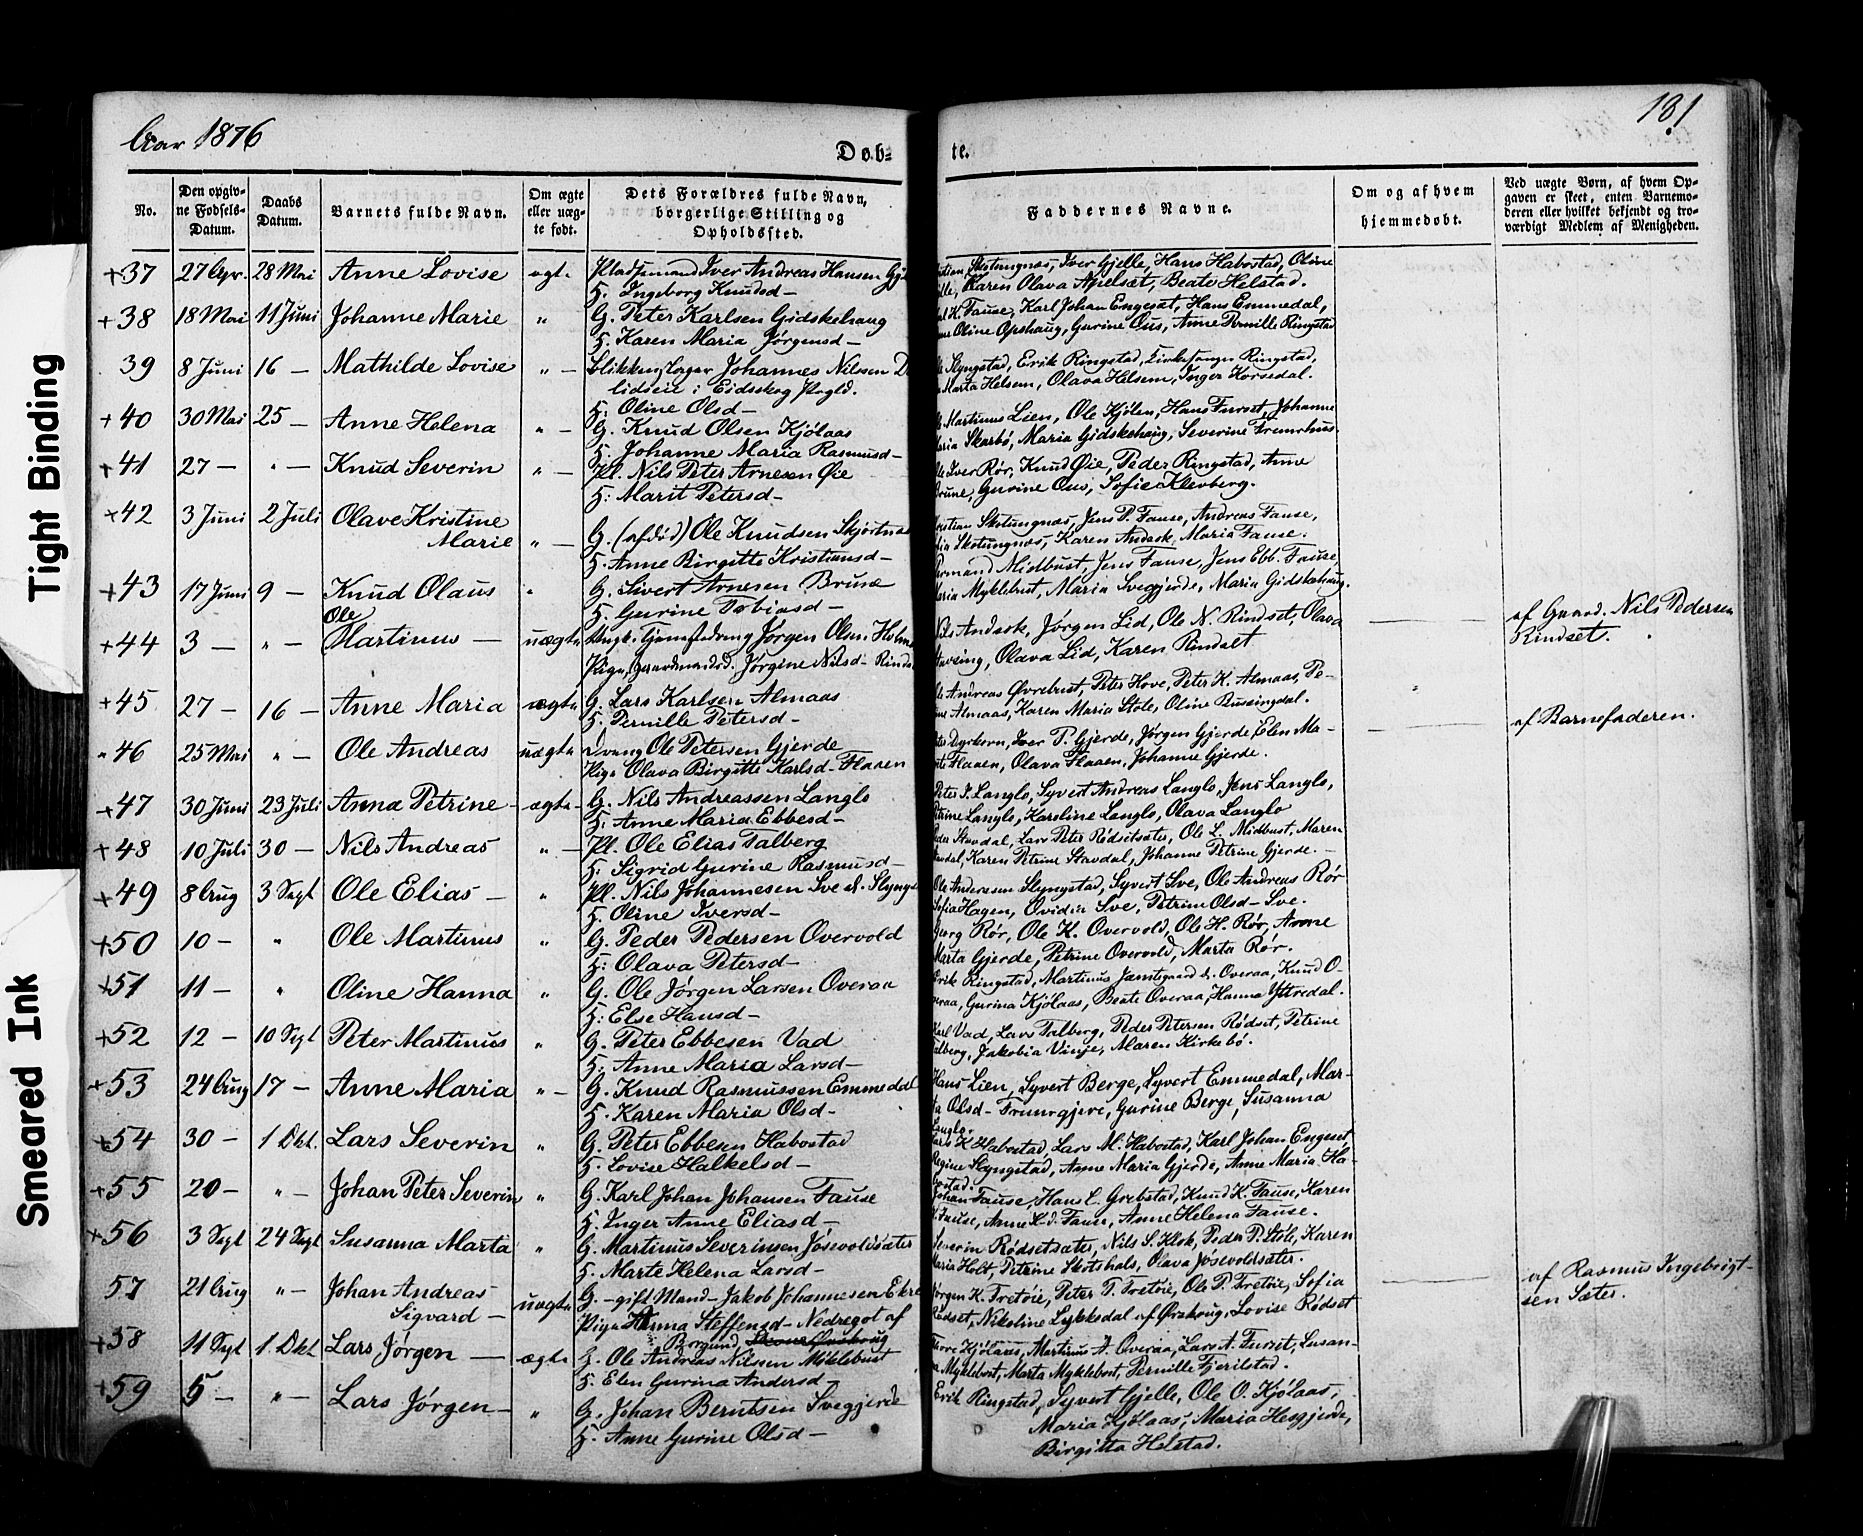 Tight Binding
Smeared Ink
Aar 1876
181
Døb-
te.
No.
Den opgiv-
ne Fødsels-
Datum.
Daabs
Datum.
Barnets fulde Navn.
Om ægte
eller uæg-
te født.
Dets Forældres fulde Navn,
borgerlige Stilling og
Opholdssted.
Faddernes Navne.
Om og af hvem
hjemmedøbt.
Ved uægte Børn, af hvem Op-
gaven er skeet, enten Barnemo-
deren eller hvilket bekjendt og tro-
værdigt Medlem af Menigheden.
+37 27 Apr. 28 Mai Anne Lovise ægte Pladsemand Iver Andreas Hansen
H. Ingeborg Knudsd-
Skotungnæs, Iver Gjelle, Hans Habostad, Oline
Karen Olava Apelsæt, Beate Helstad.
+38 18 Mai 11 Juni Johanne Marie " G. Peter Karlsen Gidskehaug
H. Karen Maria Jørgensd-
K. Fause, Karl Johan Engeset, Hans Emmedal,
Oline Opshaug, Gurine Ous, Anne Pernille Ringstad
39 8 Juni 16 - Mathilde Lovise " - Johannes Nilssen
i Eidsskog Prgld.
H. Oline Olsd-
Slyngstad, Erik Ringstad, Kirkesanger Ringstad,
Marta Helsem, Olava Helsem, Inger Korsedal.
+40 30 Mai 25 - Anne Helena " - G. Knud Olsen Kjølaas
H. Johanne Maria Rasmusd-
Martinus Lien, Ole Kjølen, Hans Furset, Johanne
Skarbø, Maria Gidskehaug, Severine
+41 27 - " - Knud Severin " - Pl. Nils Peter Arnesen Øie
H: Marit Petersd-
Iver Rør, Knud Øie, Peder Ringstad, Anne
Brune, Gurine Ous, Sofie Klevberg.
+42 3 Juni 2 Juli Olave Kristine
Marie " - G. (afdød) Ole Knudsen
H. Anne Birgitte Kristiansd-
Skotungnæs, Jens P. Fause, Andreas Fause,
Skotungnæs, Karen Andesk, Maria Fause.
+43 17 Juni 9 - Knud Olaus " G. Sivert Arnesen Brune
H. Gurine Tobiasd-
Midtbust, Jens Fause, Jens Ebb. Fause,
Myklebust, Maria Svegjerde, Maria Gidskehaug.
+44 3 - " - Ole
Martinus - uægte Ungk. Jørgen Olsen
Pige, Jørgine Nilsd-
Nils Andesk, Jørgen Lid, Ole N. Rindset, Olava
Olava Lid, Karen Rindset
af Gaard. Nils Pedersen
Rindset.
+45 27 - 16 - Anne Maria ægte G. Lars Karlsen Almaas
H. Pernille Petersd-
Andreas Øvrebust, Peter Hove, Peter K. Almaas, Pe-
Almaas, Karen Maria Støle, Oline
46 25 Mai " - Ole Andreas uægte Ole Petersen Gjerde
Pige Olava Birgitte Karlsd- Flaaen
Iver P. Gjerde, Jørgen Gjerde, Elen Ma-
Flaaen, Olava Flaaen, Johanne Gjerde.
af Barnefaderen.
+47 30 Juni 23 Juli Anna Petrine - ægte G. Nils Andreassen Langlo
H: Anne Maria Ebbesd-
Peter I. Langlo, Syvert Andreas Langlo, Jens Langlo,
Langlo, Karoline Langlo, Olava Langlo
+48 10 Juli 30 - Nils Andreas " - Pl. Ole Elias Talberg
H: Sigrid Gurine Rasmusd-
Stavdal, Lars Peter Rødsetsæter, Ole L. Midtbust, Maren
Karen Petrine Stavdal, Johanne Petrine Gjerde. -
+49 8 Aug 3 Sept Ole Elias - " Pl. Nils Johannesen Sve
H. Oline Iversd-
Ole Andersen Slyngstad, Syvert Sve, Ole Andreas Rør
Sofia Hagen, Ovidia Sve, Petrine Olsd- Sve.
+50 10 - " Ole Martinus " G. Peder Pedersen Overvold
H: Olava Petersd-
Georg Rør, Ole K. Overvold, Ole H. Rør, Anne
Marta Gjerde, Petrine Overvold, Marta Rør.
+51 11 - " Oline Hanna " G. Ole Jørgen Larsen Overaa
H: Else Hansd-
Erik Ringstad, Martinus Overaa, Knud O-
Gurina Kjølaas, Beate Overaa, Hanna Yttredal.
+52 12 - 10 Sept Peter Martinus " G. Peter Ebbesen Vad
H: Anne Maria Larsd-
Karl Vad, Lars Talberg, Peder Petersen Rødset, Petrine
Talberg, Jakobia Vinje, Maren Kirkebø.
+53 24 Aug 17 - Anne Maria " - G. Knud Rasmussen Emmedal
H. Karen Maria Olsd-
Hans Lien, Syvert Berge, Syvert Emmedal, Mar-
ta Olsd- Gurine Berge, Susanna
Langlo.
+54 30 - 1 Okt. Lars Severin " G. Peter Ebbesen Habostad
H. Lovise Halkelsd-
Lars K. Habostad, Lars M. Habostad, Karl Johan Engeset,
Regine Slyngstad, Anne Maria Gjerde, Anne Maria Ha-
bostad.
+55 20 - " - Johan Peter Severin " G. Karl Johan Johansen Fause
H. Inger Anne Eliasd-
Johan Fause, Hans L. Grebstad, Knud K. Fause, Karen
Fause, Anne Fause, Anne Helena Fause.
+56 3 Sept 24 Sept Susanna Marta " G. Martinus Severinsen Jøsevoldsæter
H. Marte Helena Larsd-
Severin Rødsetsæter, Nils S. Klok, Peder P. Støle, Karen
Maria Holt, Petrine Skotshals, Olava Jøsevoldsæter.
57 21 Aug " - Johan Andreas
Sigvard - uægte G. - gift Mand - Jakob Johannesen Ekre
Pige Hanna Steffensd- Nedregot af
Borgund,
Jørgen K. Tretøie, Peter T. Tretøie, Ole P. Tretøie, Sofia
Rødset, Nikoline Lykkedal af Ørskoug, Lovise Rødset
af Rasmus Ingebrigt-
sen Sæter.
+58 11 Sept 1. Okt Lars Jørgen - ægte G. Ole Andreas Nilsen Myklebust
H. Elen Gurina Andersd-
Kjølaas, Martinus A. Overaa, Lars A. Furset, Susan-
na Myklebost, Marta Myklebost, Pernille Fjerilstad.
+59 5 - " - Lars Jørgen - " G. Johan Berntsen Svegjerde
H. Anne Gurine Olsd-
Erik Ringstad, Syvert Gjelle, Ole O. Kjølaas,
Maria Kjølaas, Maria Hesgjerde,
Birgitta Helstad.